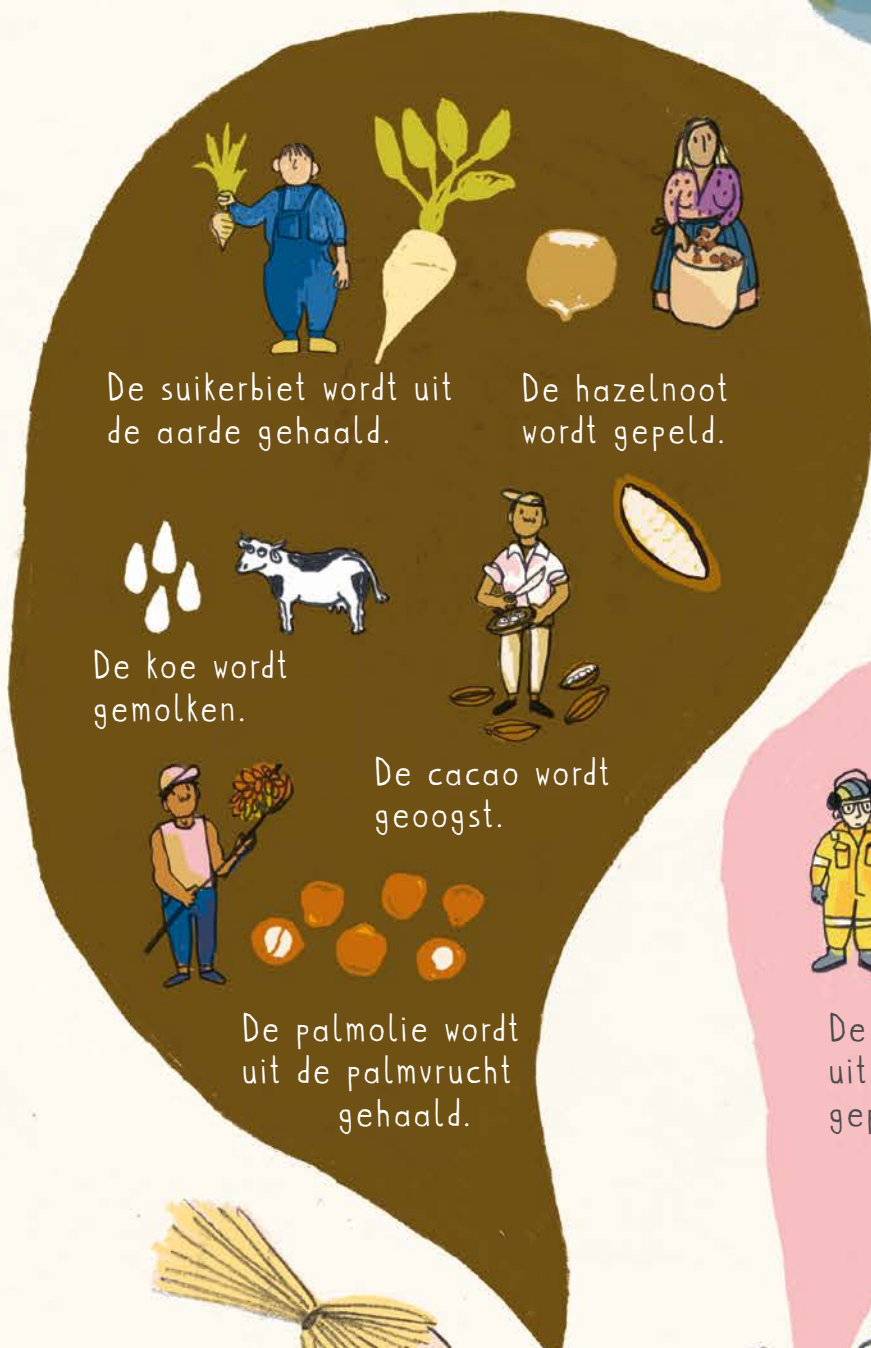 De suikerbiet wordt uit
de aarde gehaald.
De hazelnoot
wordt gepeld.
De koe wordt
gemolken.
De cacao wordt
geoogst.
De palmolie wordt
uit de palmvrucht
gehaald.
De
uit